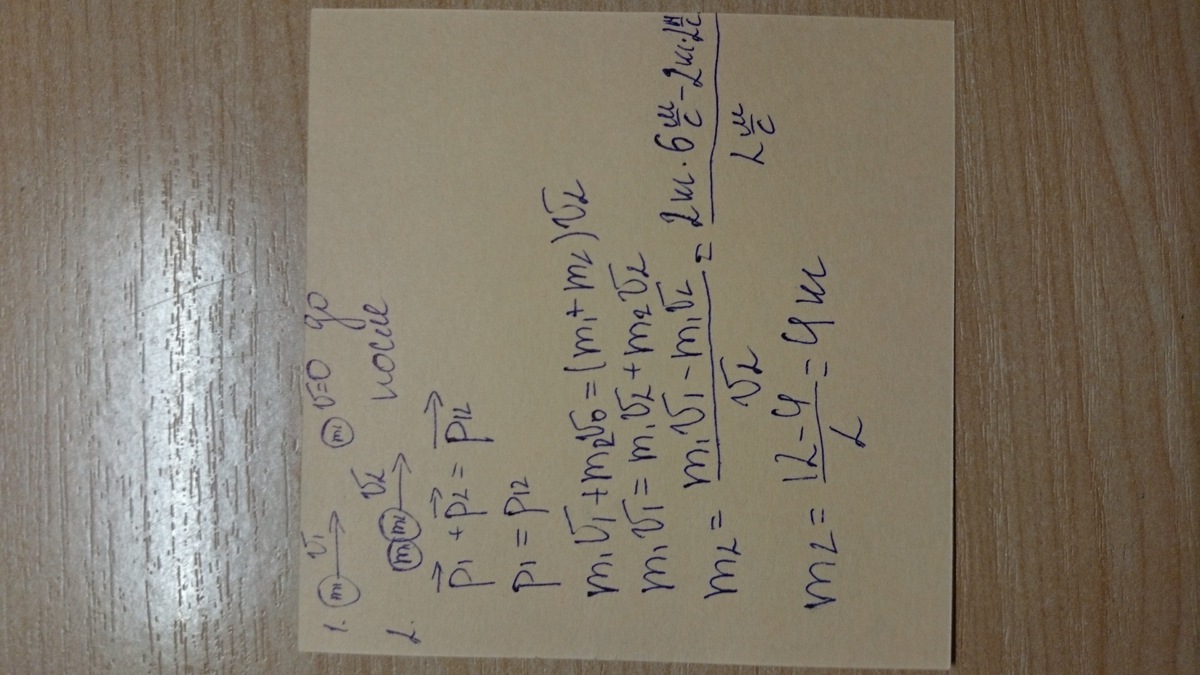 1. m₁ v₁→ m₂ v=0 до
2. m₁ m₂ v₂→ после
p₁→ + p₂→ = p₁₂→
p₁ = p₁₂
m₁v₁ + m₂v₀ = (m₁ + m₂)v₂
m₁v₁ = m₁v₂ + m₂v₂
m₂ = (m₁v₁ - m₁v₂)/v₂ = (2кг · 6 м/с - 2кг · 2 м/с)/(2 м/с)
m₂ = (12 - 4)/2 = 4 кг